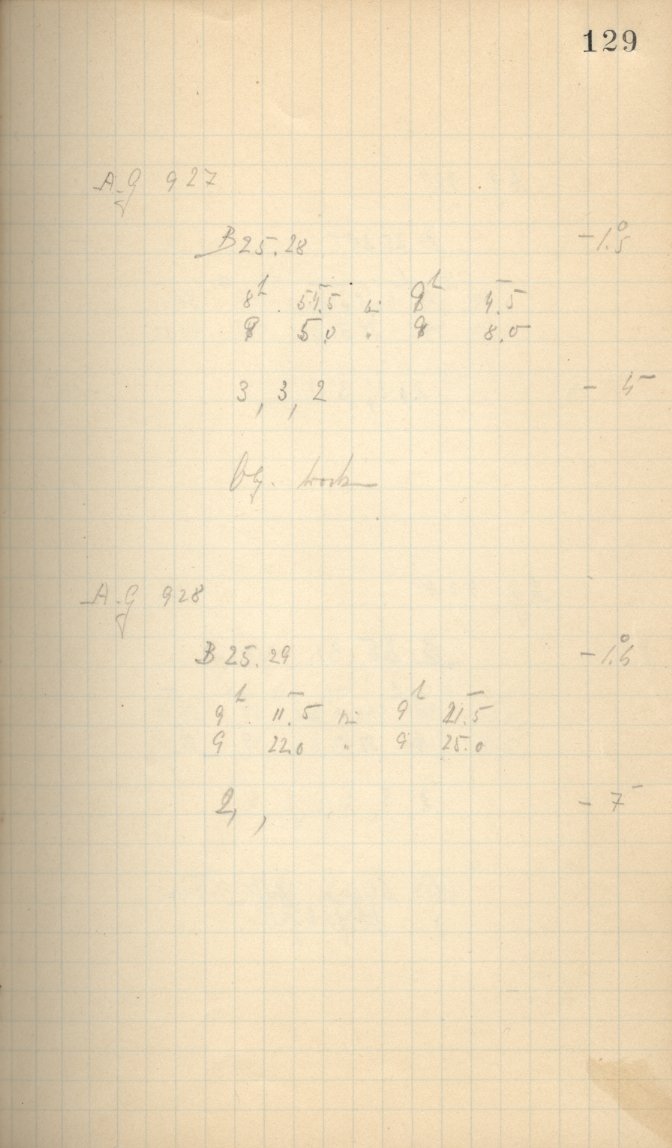 129
A.G 927
B 25.28 -1°.5
8h 54.5 bis 9h 4.5
9 5.0 " 9 8.0
3, 3, 2 - 5
A.G 928
B 25.29 -1°.6
9h 11.5 bis 9h 21.5
9 22.0 " 9 25.0
2, , - 7